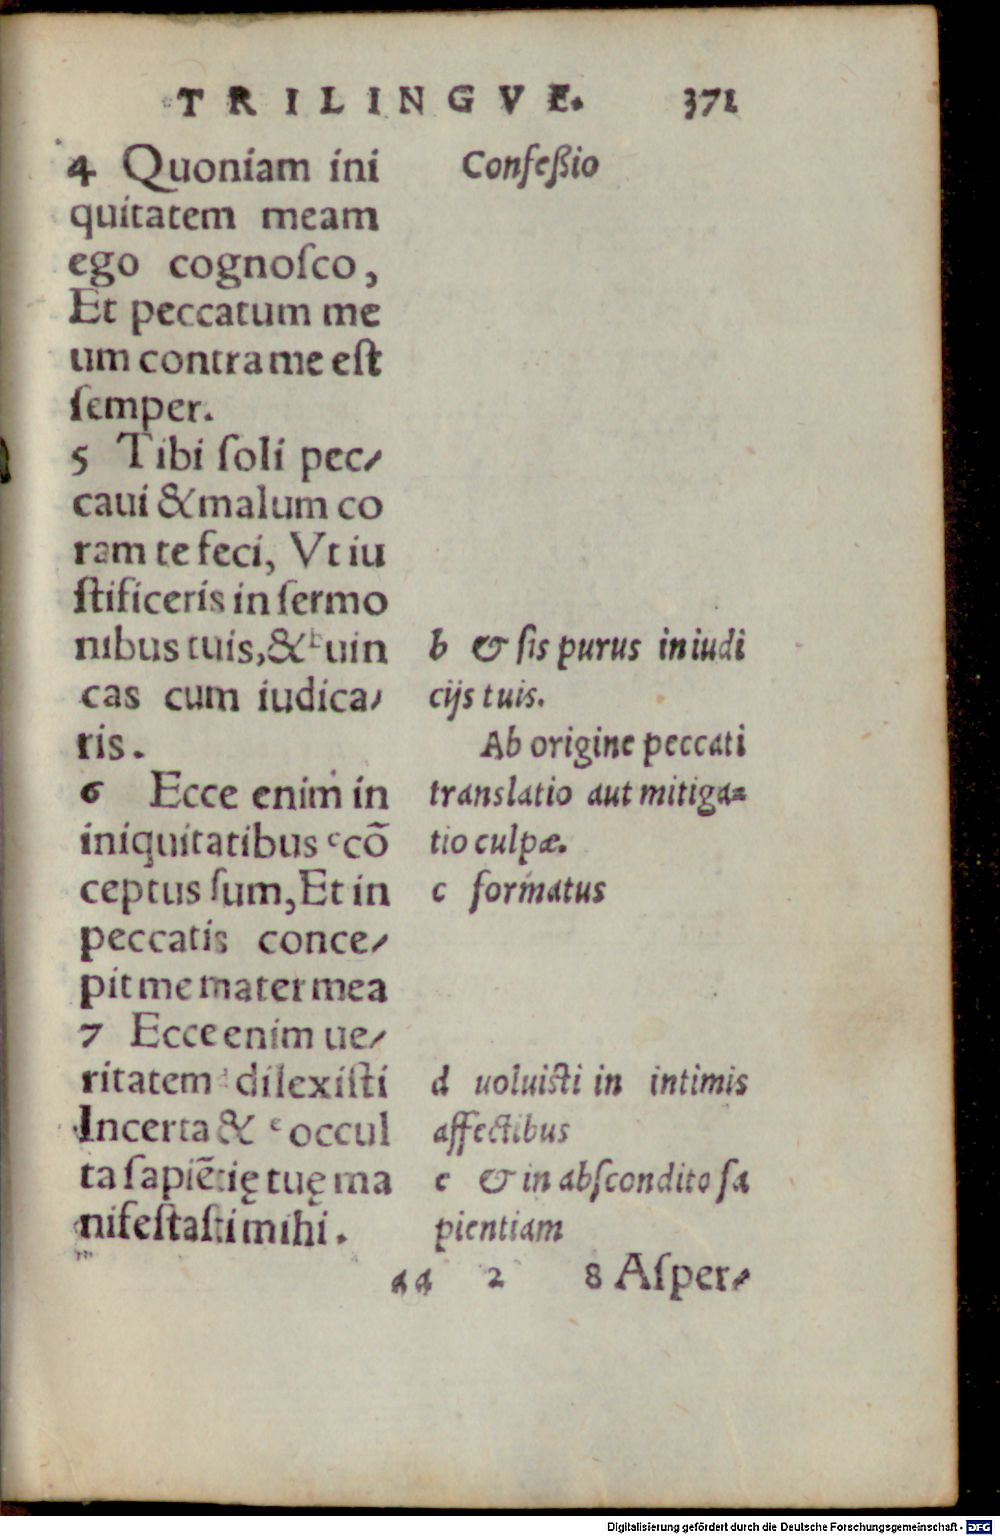 TRILINGVE. 371
4 Quoniam ini
quitatem meam
ego cognoſco,
Et peccatum me
um contra me eſt
ſemper.
5 Tibi ſoli pec-
caui & malum co
ram te feci, Vt iu
ſtificeris in ſermo
nibus tuis, & ᵇuin
cas cum iudica-
ris.
6 Ecce enim in
iniquitatibus ᶜcō
ceptus ſum, Et in
peccatis conce-
pit me mater mea
7 Ecce enim ue-
ritatem ᵈdilexiſti
Incerta & ᵉoccul
ta ſapiētię tuę ma
nifeſtaſti mihi.
Confeßio
b & ſis purus in iudi
cijs tuis.
Ab origine peccati
translatio aut mitiga=
tio culpæ.
c formatus
d uoluiſti in intimis
affectibus
e & in abſcondito ſa
pientiam
aa 2 8 Aſper-
Digitalisierung gefördert durch die Deutsche Forschungsgemeinschaft - DFG